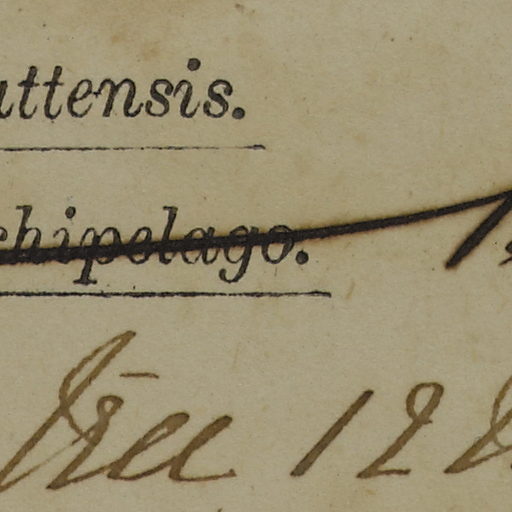 attensis.
chipelago.
Tree 12